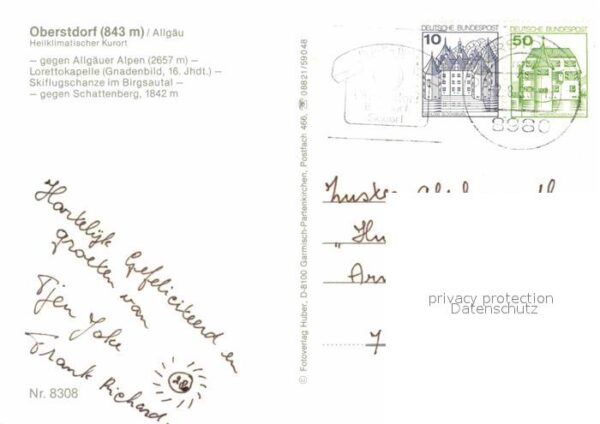 Oberstdorf (843 m) / Allgäu
Heilklimatischer Kurort
— gegen Allgäuer Alpen (2657 m) —
Lorettokapelle (Gnadenbild, 16. Jhdt.) —
Skiflugschanze im Birgsautal —
— gegen Schattenberg, 1842 m
Hartelijk Gefeliciteerd en
groeten van
Tjen Joke
Frank Richard.
Nr. 8308
© Fotoverlag Huber, D-8100 Garmisch-Partenkirchen, Postfach 466, ☏ 08821/59048
DEUTSCHE BUNDESPOST
10
DEUTSCHE BUNDESPOST
50
8980
Zuster
„Hu
Ar
7
privacy protection
Datenschutz